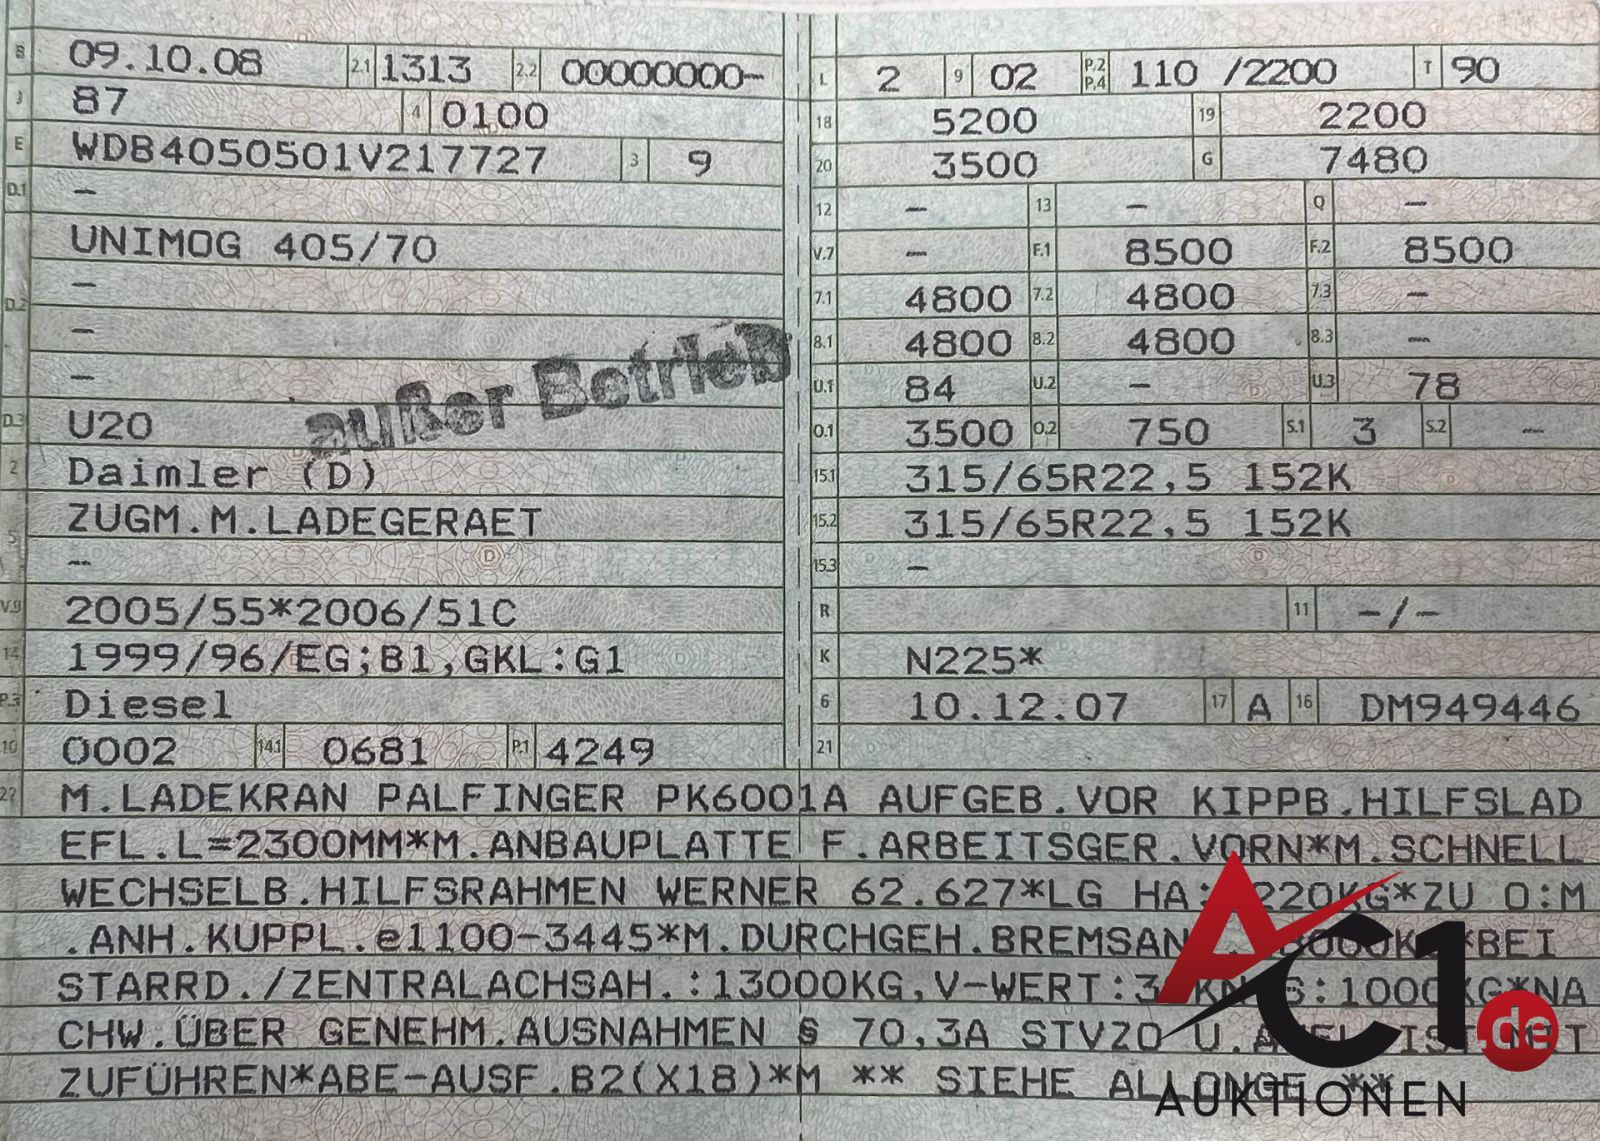 B 09.10.08 2.1 1313 2.2 00000000-
J 87 4 0100
E WDB4050501V217727 3 9
D.1 -
UNIMOG 405/70
D.2 -
-
-
außer Betrieb
D.3 U20
2 Daimler (D)
5 ZUGM.M.LADEGERAET
-
V.9 2005/55*2006/51C
14 1999/96/EG;B1,GKL:G1
P.3 Diesel
10 0002 14.1 0681 P.1 4249
L 2 9 02 P.2 P.4 110 /2200 T 90
18 5200 19 2200
20 3500 G 7480
12 - 13 - Q -
V.7 - F.1 8500 F.2 8500
7.1 4800 7.2 4800 7.3 -
8.1 4800 8.2 4800 8.3 -
U.1 84 U.2 - U.3 78
O.1 3500 O.2 750 S.1 3 S.2 -
15.1 315/65R22,5 152K
15.2 315/65R22,5 152K
15.3 -
R 11 -/-
K N225*
6 10.12.07 17 A 16 DM949446
21
22 M.LADEKRAN PALFINGER PK6001A AUFGEB.VOR KIPPB.HILFSLAD
EFL.L=2300MM*M.ANBAUPLATTE F.ARBEITSGER.VORN*M.SCHNELL
WECHSELB.HILFSRAHMEN WERNER 62.627*LG HA: 220KG*ZU O:M
.ANH.KUPPL.e1100-3445*M.DURCHGEH.BREMSAN *BEI
STARRD./ZENTRALACHSAH.:13000KG,V-WERT:3 KN :1000KG*NA
CHW.ÜBER GENEHM.AUSNAHMEN § 70,3A STVZO U. IST MIT
ZUFÜHREN*ABE-AUSF.B2(X18)*M ** SIEHE ALLONGE **
AC1.de
AUKTIONEN